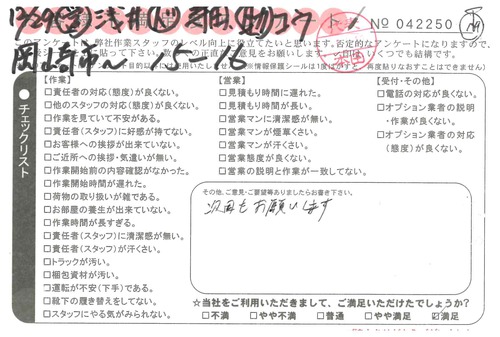 № 042250
アンケートは、弊社作業スタッフのレベル向上に役立てたいと思います。否定的なアンケートになりますので、
チェックリスト
【作業】
□責任者の対応(態度)が良くない。
□他のスタッフの対応(態度)が良くない。
□作業を見ていて不安がある。
□責任者(スタッフ)に好感が持てない。
□お客様への挨拶が出来ていない。
□ご近所への挨拶・気遣いが無い。
□作業開始前の内容確認がなかった。
□作業開始時間が遅れた。
□荷物の取り扱いが雑である。
□お部屋の養生が出来ていない。
□作業時間が長すぎる。
□責任者(スタッフ)に清潔感が無い。
□責任者(スタッフ)が汗くさい。
□トラックが汚い。
□梱包資材が汚い。
□運転が不安(下手)である。
□靴下の履き替えをしてない。
□スタッフにやる気がみられない。
【営業】
□見積もり時間に遅れた。
□見積もり時間が長い。
□営業マンに清潔感が無い。
□営業マンが煙草くさい。
□営業マンが汗くさい。
□営業態度が良くない。
□営業の説明と作業が一致してない。
【受付・その他】
□電話の対応が良くない。
□オプション業者の説明
・作業が良くない。
□オプション業者の対応
(態度)が良くない。
その他、ご意見・ご要望等ありましたらお書き下さい。
次回もお願いします
☆当社をご利用いただきまして、ご満足いただけたでしょうか?
□不満 □やや不満 □普通 □やや満足 ☑満足